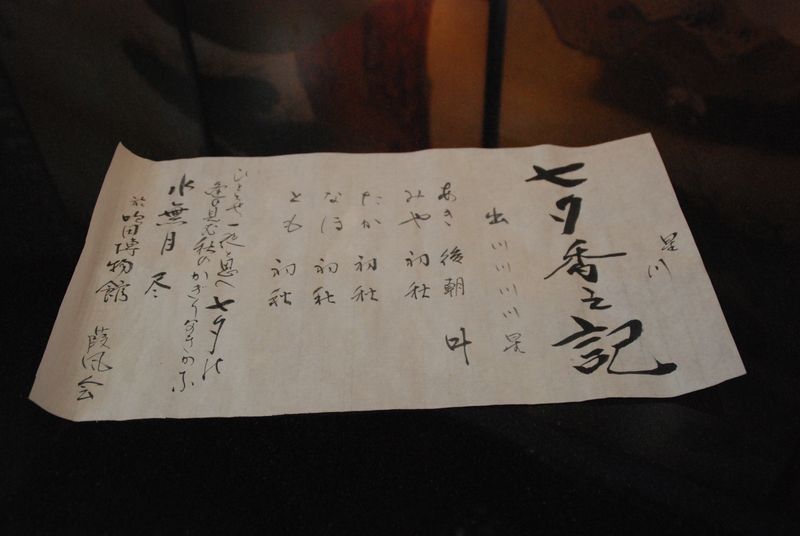 星川
七夕香之記
出 川川川川星
あき 後朝 叶
みや 初秋
たか 初秋
なほ 初秋
とも 初秋
一夜と思へ 七夕の
逢見む秋のかぎりなきかな
水無月 尽
於 吹田博物館 葭風会